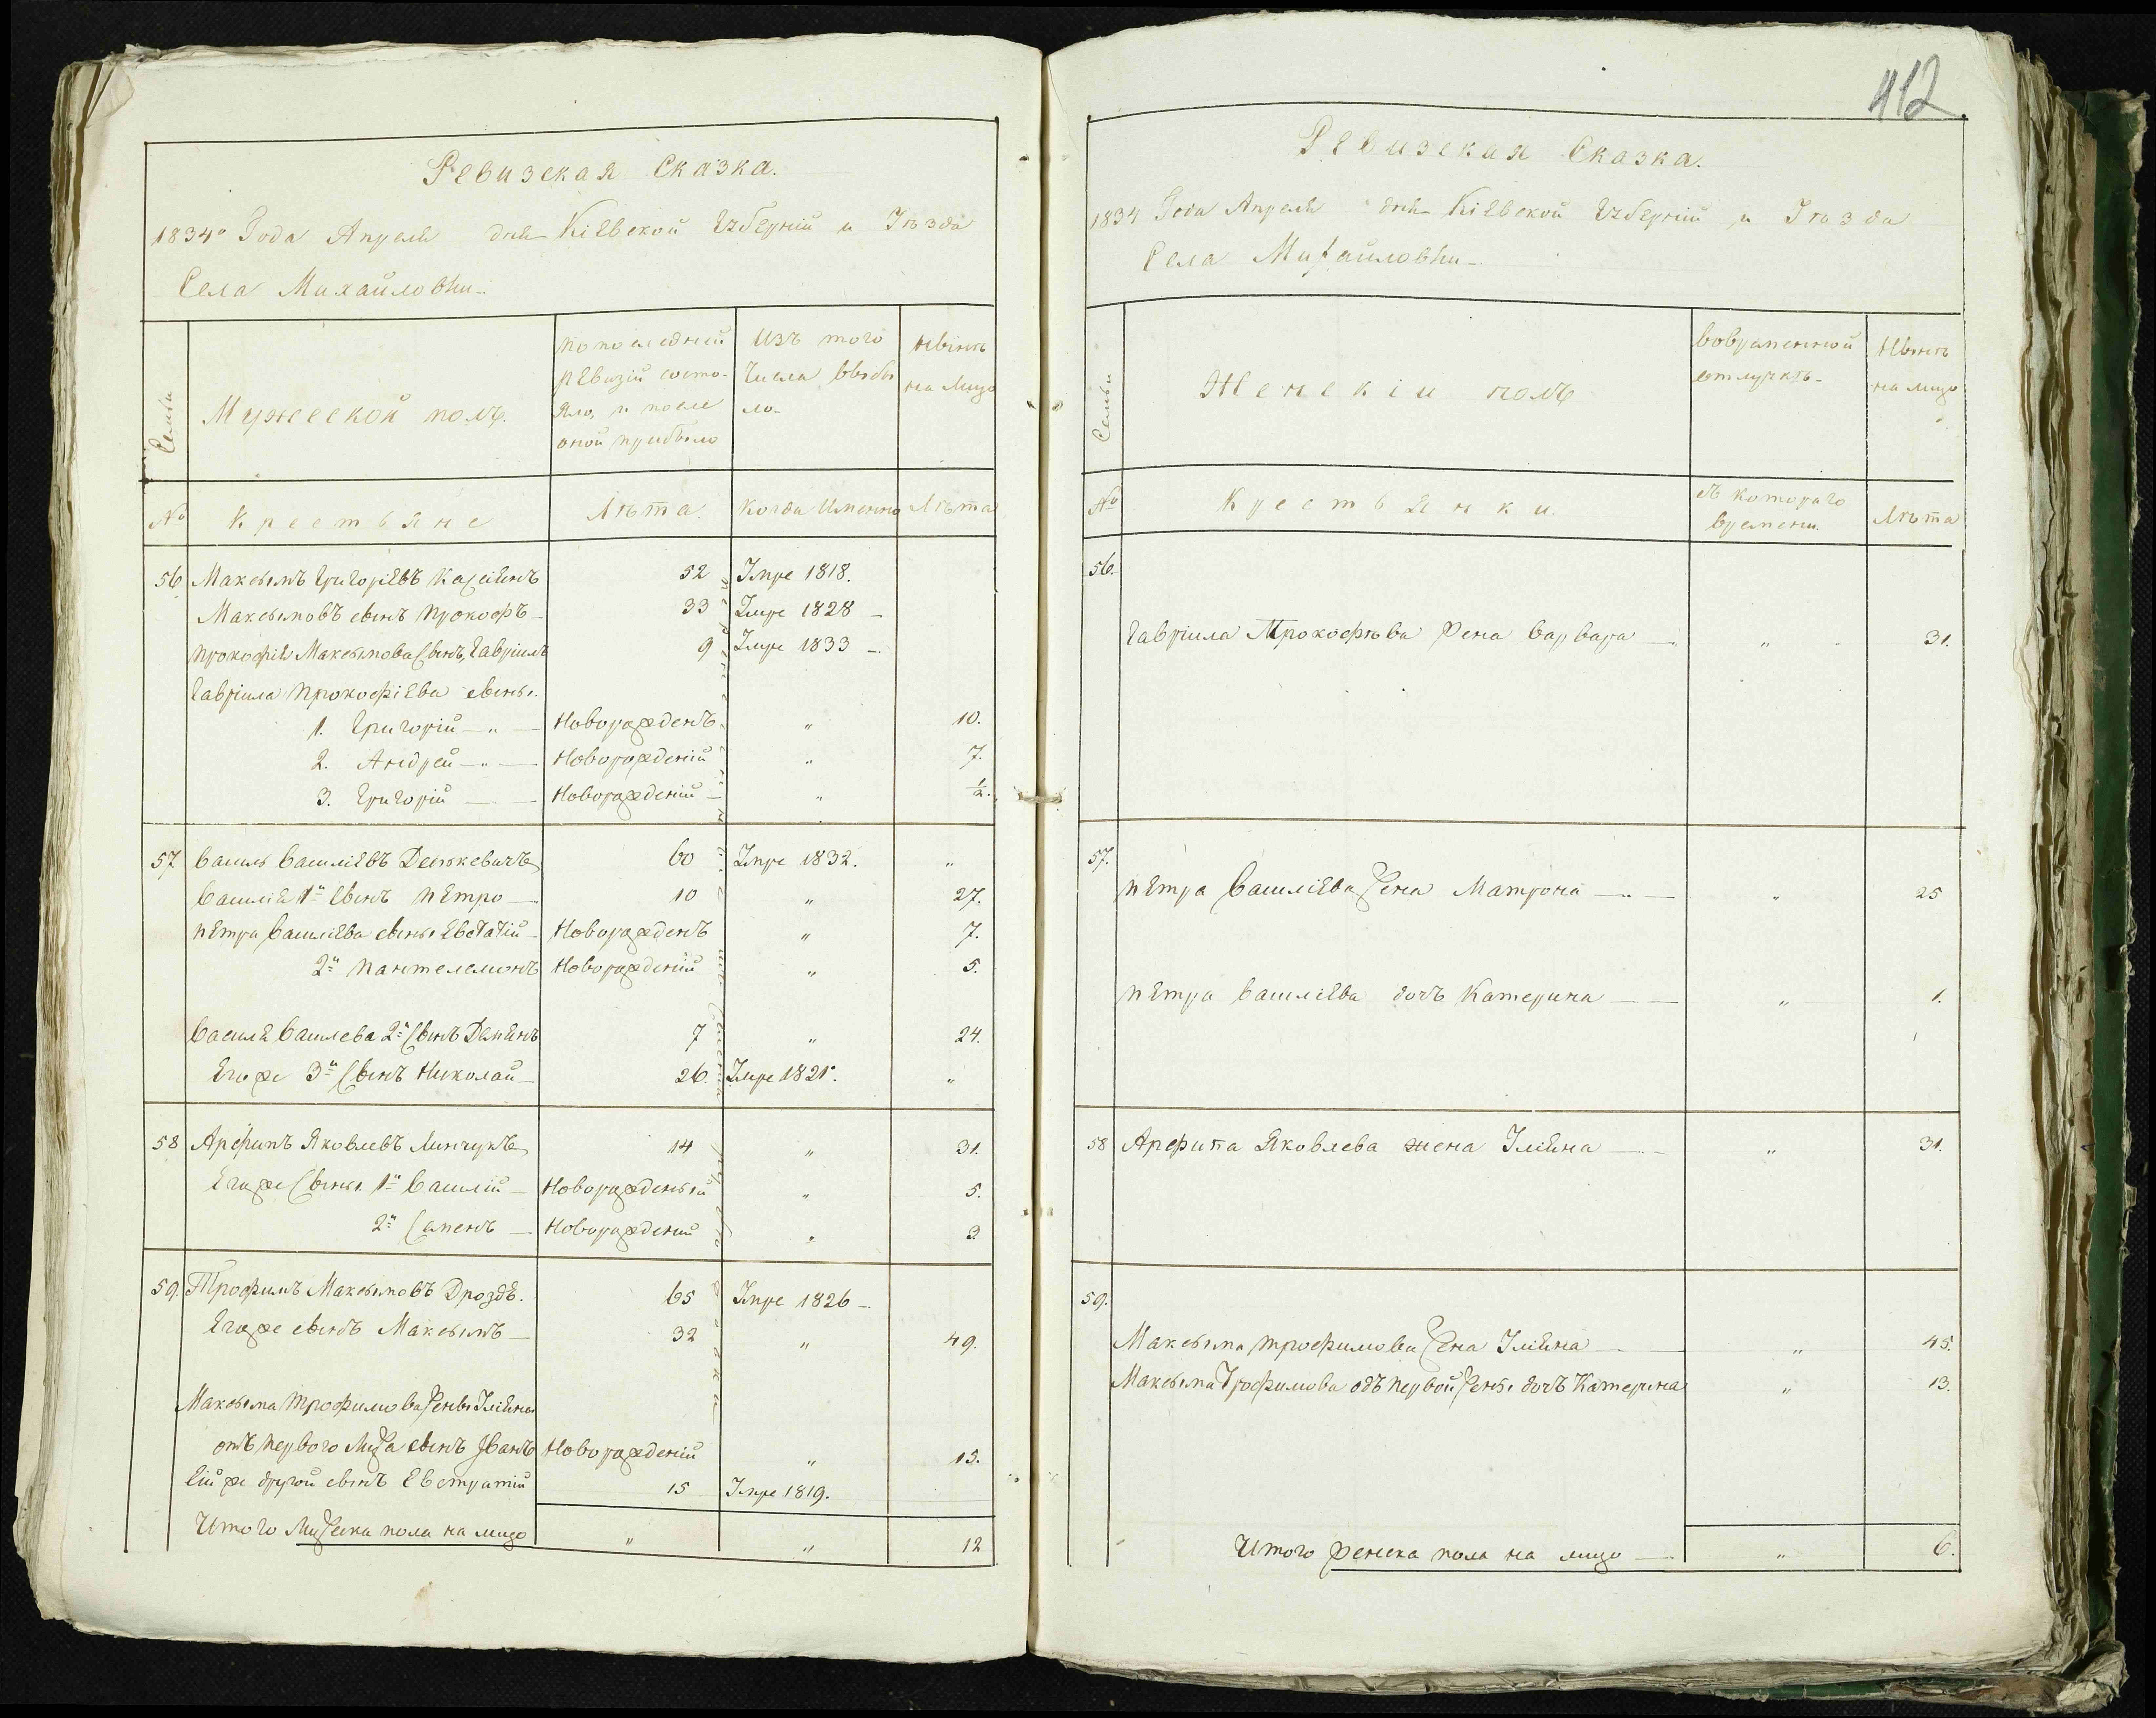 412
Ревизская Сказка.
1834º Года Апреля дня Кіевской Губерніи и Уѣзда
Села Михайловки
Семьи
Мужеской полъ.
по последней
ревизіи состо-
яло, и после
оной прибыло
Изъ того
Числа выбы
ло
Нынѣ
на Лицо
№
Крестьяне
Лѣта.
Когда Именно
Лѣта
56 Максымъ Григоріевъ 52 Умре 1818.
Максымовъ сынъ Прокофъ 33 Умре 1828
Прокофія Максымова Сынъ, Гавріилъ 9 Умре 1833
Гавріила Прокофіева сыны.
1. Григорій Новорожденъ " 10.
2. Андрей Новорожденій " 7.
3. Григорій Новорожденій " 1/2.
57 Василь Василіевъ 60 Умре 1832. "
Василія 1й Сынъ Петро 10 " 27.
Петра Василіева сыны Евстатій Новорожденъ " 7.
2й Пантелемонъ Новорожденій " 5.
Василя Василева 2й Сынъ Демянъ 7 " 24.
Егоже 3й Сынъ Николай 26. Умре 1821. "
58 Арефитъ Яковлевъ 14 " 31.
Егоже Сыны 1й Василій Новорожденый " 5.
2й Саменъ Новорожденій " 3
59. Трофимъ Максымовъ Дроздъ. 65 Умре 1826
Егоже сынъ Максымъ 32 " 49.
Максыма Трофимова жены Уліяны
отъ первого Мужа сынъ Иванъ Новорожденій " 15.
Ейже другой сынъ Евстратій 15 Умре 1819.
Итого Мужеска пола на лицо " " 12
Ревизская Сказка.
1834 Года Апреля дня Кіевской Губерніи и Уѣзда
Села Михайловки
Семьи
Женскіи полъ
Вовременной
отлучкѣ
Нынѣ
на лицо
№
Крестьянки.
съ котораго
времени.
Лѣта
56.
Гавріила Прокофѣва жена Варвара " 31.
57.
Петра Василіева жена Матрона " 25
Петра Василіева дочъ Катерина " 1.
58 Арефита Яковлева жена Уліяна " 31.
59.
Максыма Трофимова жена Уліяна " 45.
Максыма Трофимова одъ первой жены дочъ Катерина " 13.
Итого женска пола на лицо " 6.